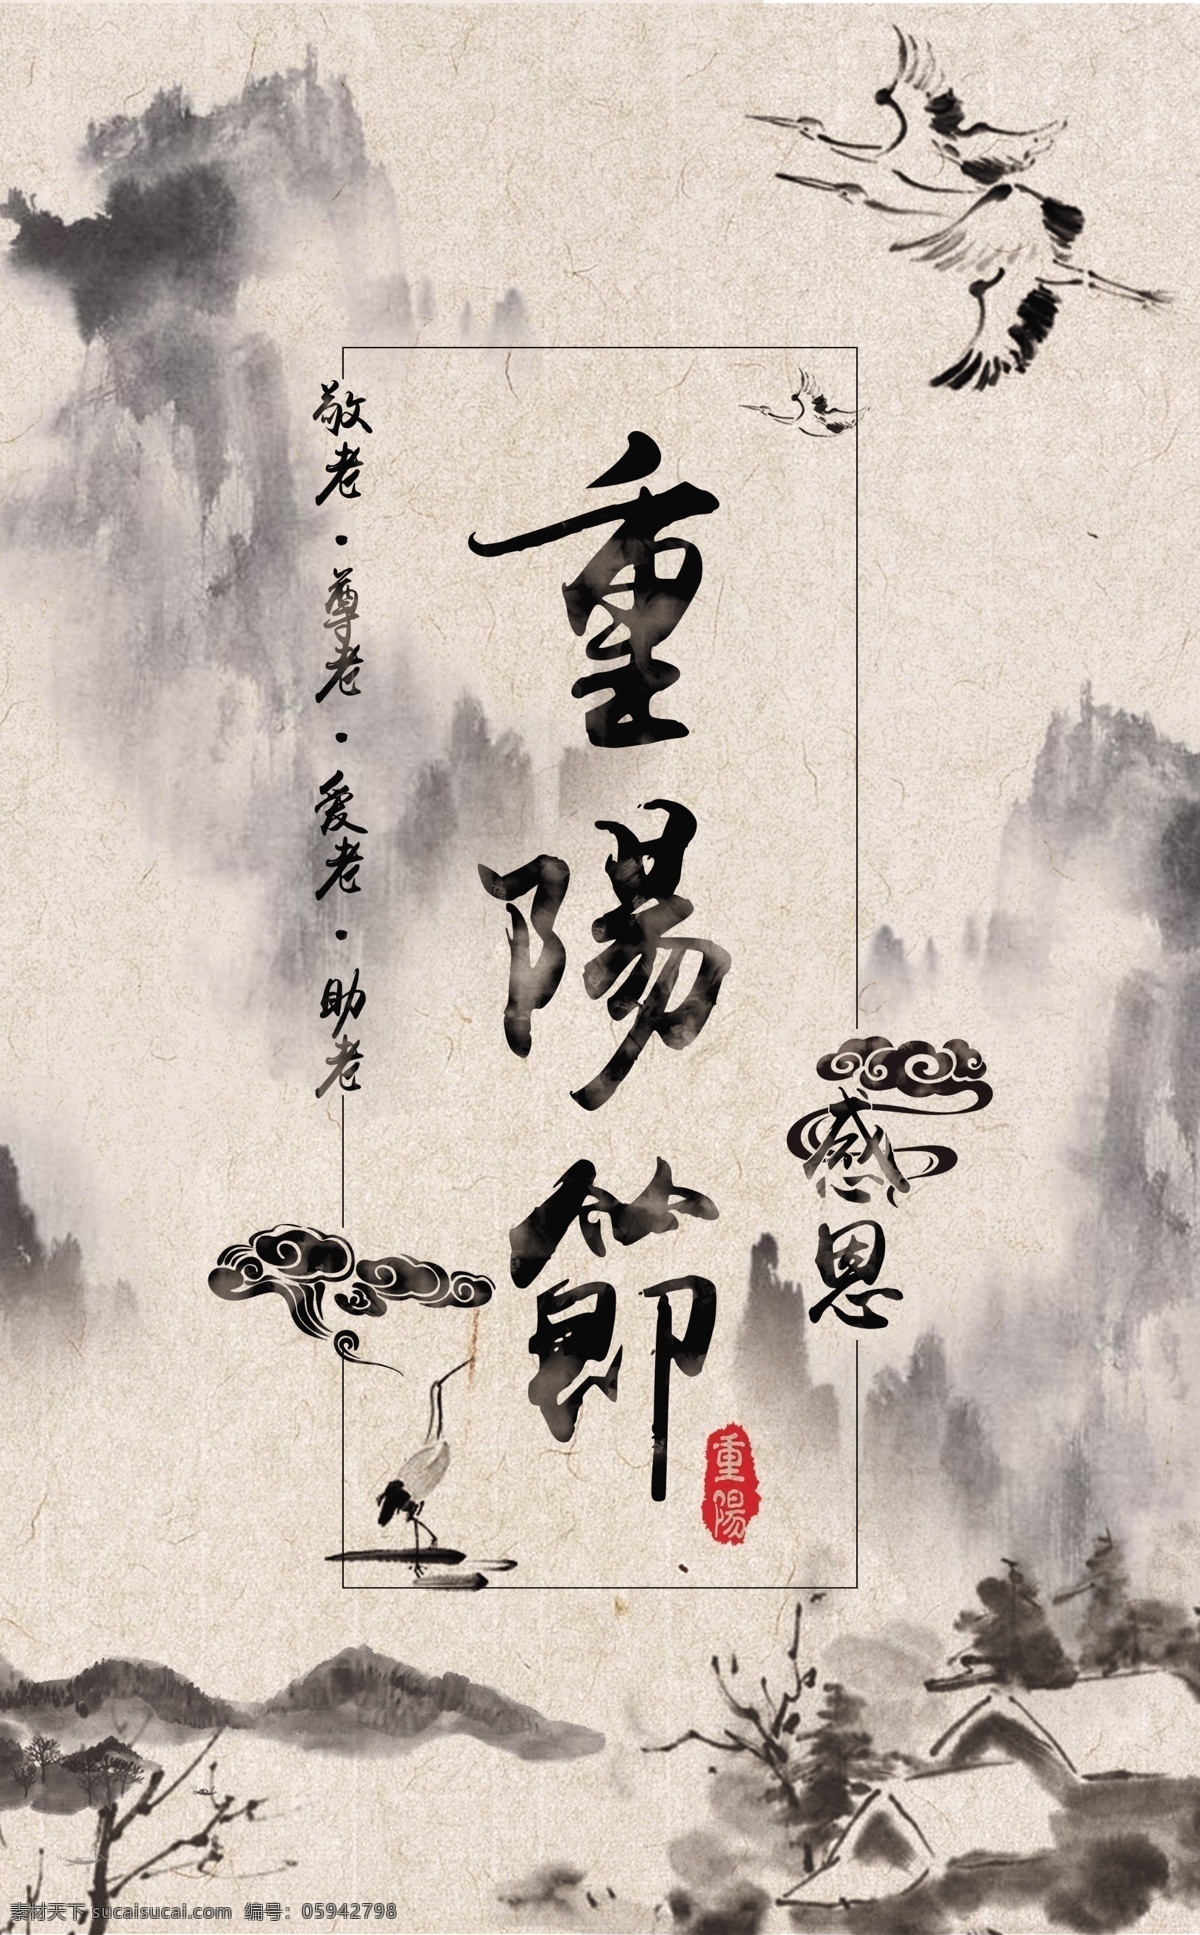 重陽節
敬老·尊老·爱老·助老
感恩
重陽
素材天下 sucaisucai.com 编号：05942798